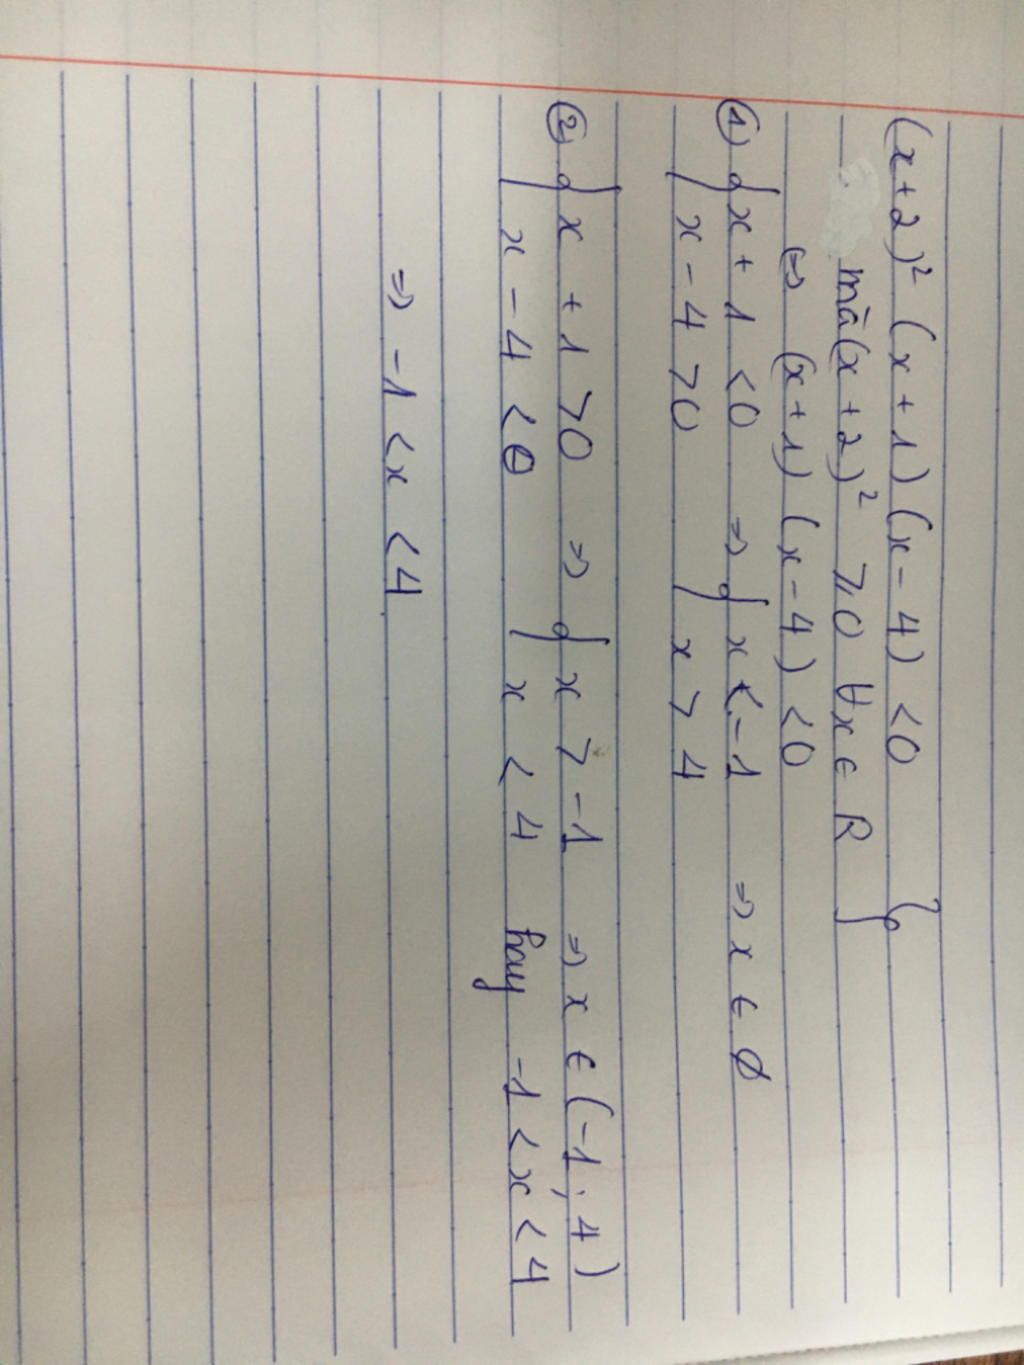 (x+2)² (x+1)(x-4) <0 }
mà (x+2)² ≥0 ∀x ∈ R
⇔ (x+1) (x-4) <0
① { x+1 <0 ⇒ { x <-1 ⇒ x ∈ ∅
x-4 >0 x > 4
② { x +1 >0 ⇒ { x > -1 ⇒ x ∈ (-1; 4)
x -4 <0 x < 4 hay -1 < x < 4
⇒ -1 < x < 4